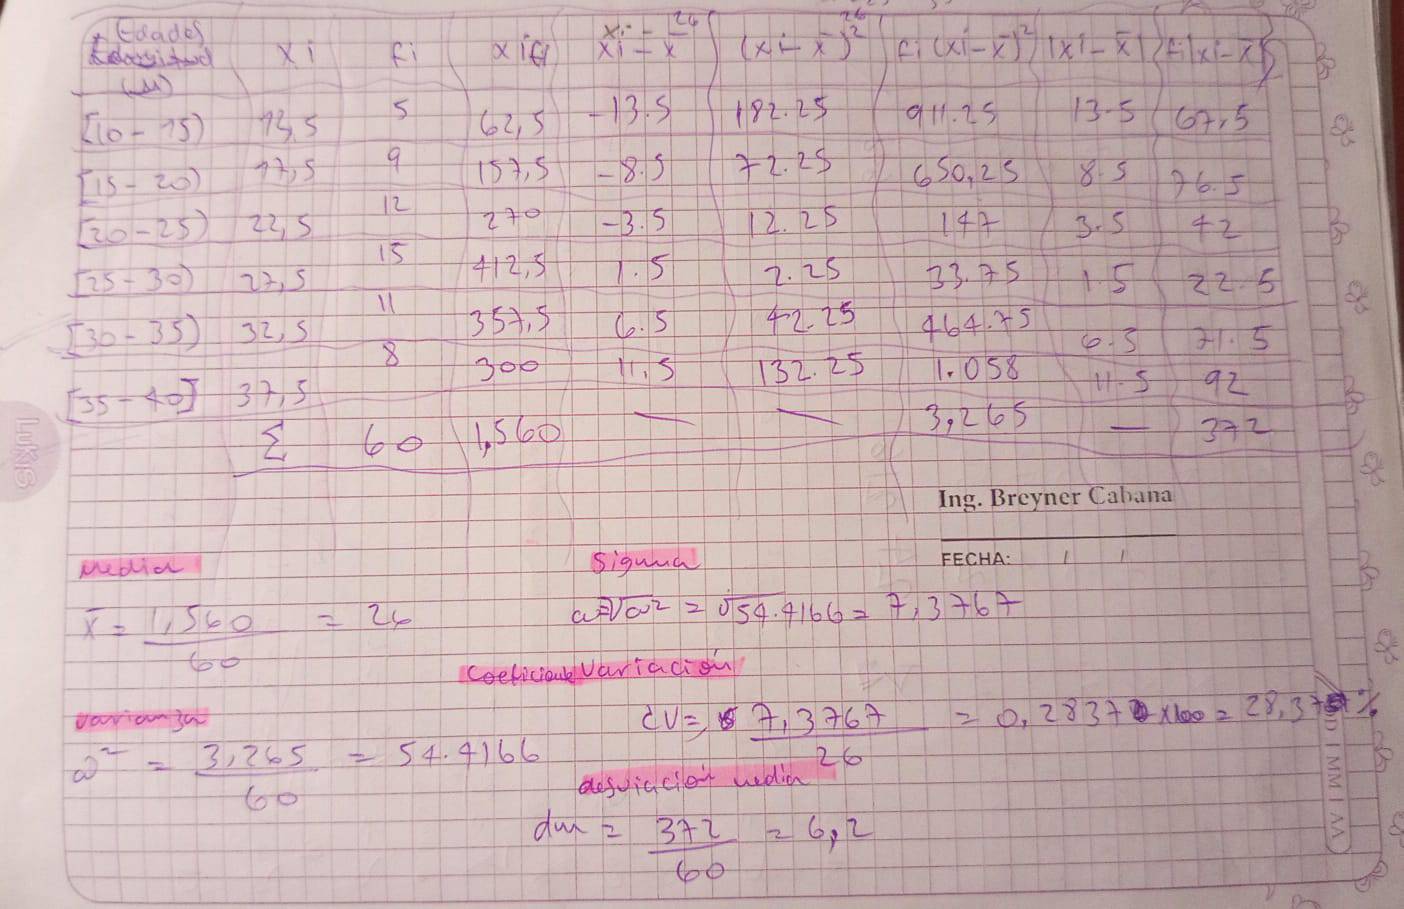 Edades
(M)
xi fi xifi xi - x̄ 26 (xi - x̄)² 26 fi(xi - x̄)² |xi - x̄| fi|xi - x̄|
[10 - 15) 12,5 5 62,5 -13.5 182.25 911.25 13.5 67,5
[15 - 20) 17,5 9 157,5 -8.5 72.25 650,25 8.5 76.5
[20 - 25) 22,5 12 270 -3.5 12.25 147 3.5 42
[25 - 30) 27,5 15 412,5 1.5 2.25 33.75 1.5 22.5
[30 - 35) 32,5 11 357,5 6.5 42.25 464.75 6.5 71.5
[35 - 40] 37,5 8 300 11,5 132.25 1.058 11.5 92
Σ 60 1,560 — — 3,265 — 372
Ing. Breyner Cabana
FECHA: / /
Media
x̄ = 1,560 / 60 = 26
Sigma
σ = √σ² = √54.4166 = 7,3767
Coeficiente Variación
CV = 7,3767 / 26 = 0,2837 x100 = 28,37%
Varianza
σ² = 3,265 / 60 = 54.4166
desviación media
dm = 372 / 60 = 6,2
LUKAS